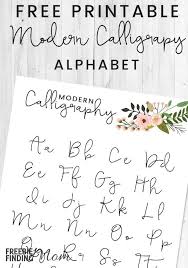 FREE PRINTABLE
Modern Calligrapy
ALPHABET
MODERN
Calligraphy
Aa Bb Cc Dd
Ee Ff Gg Hh
Ii Jj Kk Ll
Mm Nn Oo
FREEBIE
FINDING Mom